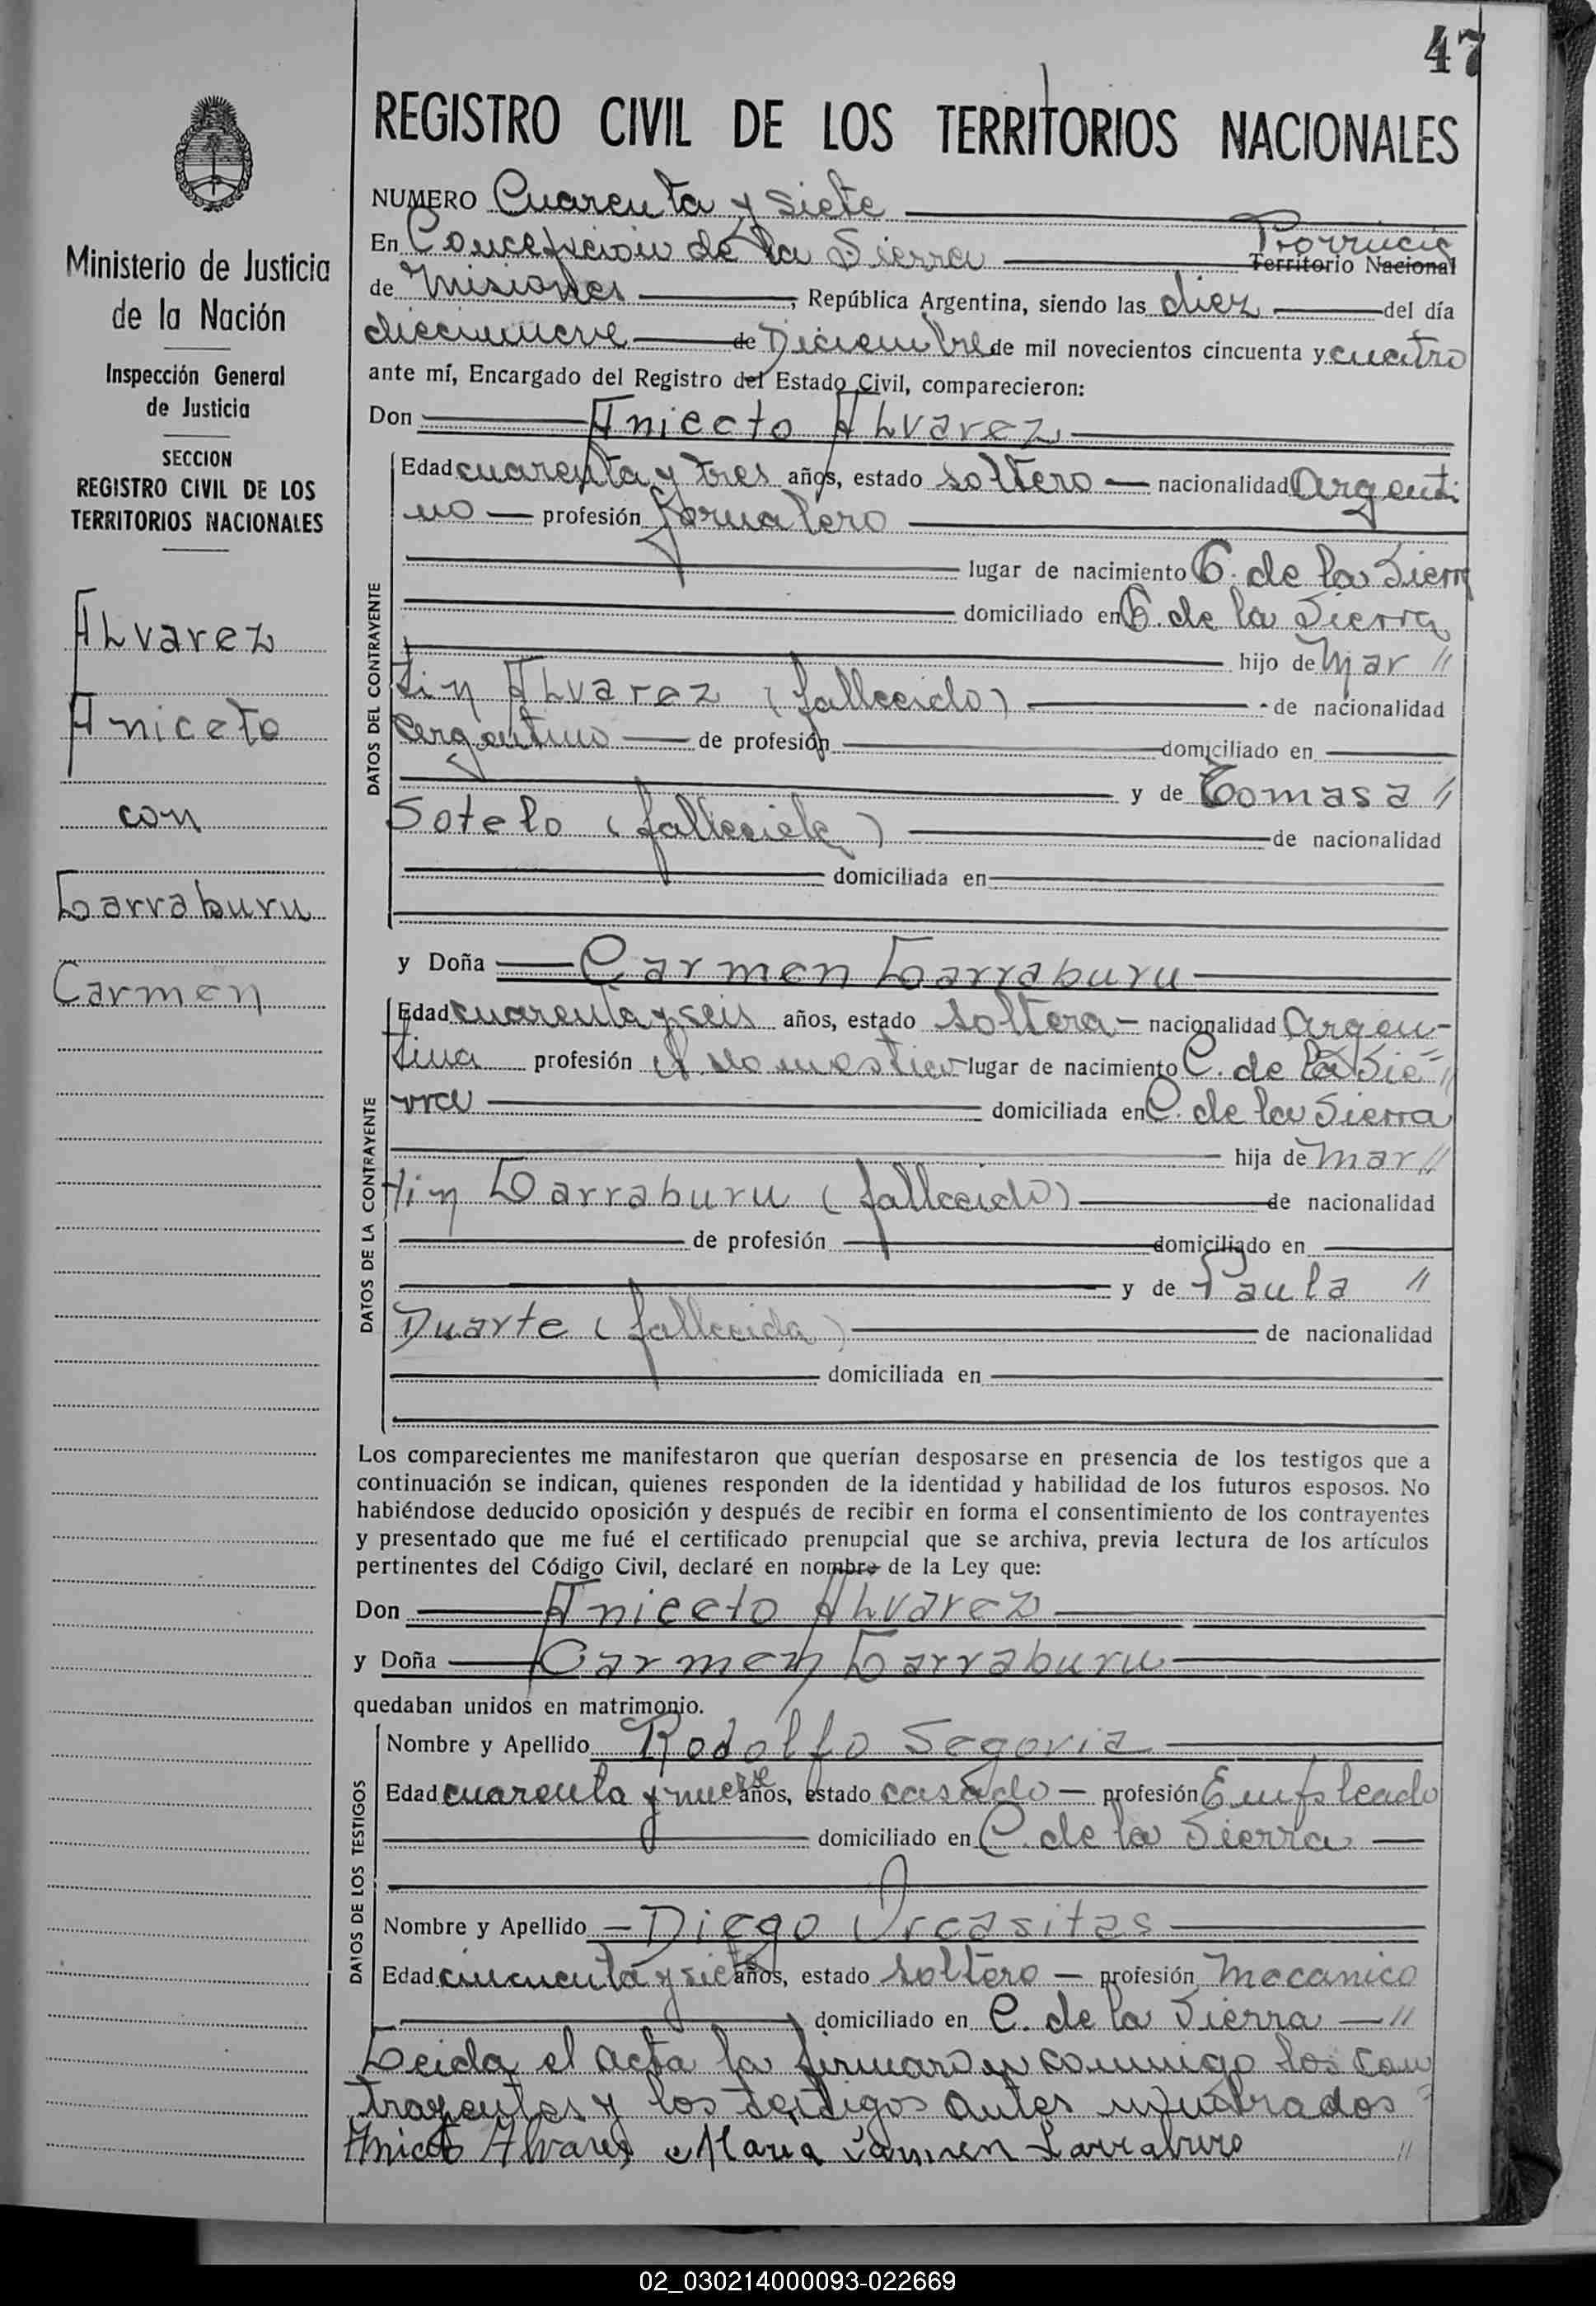 47
REGISTRO CIVIL DE LOS TERRITORIOS NACIONALES
Ministerio de Justicia
de la Nación
Inspección General
de Justicia
SECCION
REGISTRO CIVIL DE LOS
TERRITORIOS NACIONALES
Alvarez
Aniceto
con
Larraburu
Carmen
NUMERO Cuarenta y siete
Provincia
En Concepcion de la Sierra Territorio Nacional
de Misiones, República Argentina, siendo las diez del día
diecinueve de Diciembre de mil novecientos cincuenta y cuatro
ante mí, Encargado del Registro del Estado Civil, comparecieron:
Don Aniceto Alvarez
DATOS DEL CONTRAYENTE
Edad cuarenta y tres años, estado soltero nacionalidad Argenti
no profesión Jornalero
lugar de nacimiento C. de la Sierra
domiciliado en C. de la Sierra
hijo de Mar "
tin Alvarez (fallecido) de nacionalidad
argentino de profesión domiciliado en
y de Tomasa "
Sotelo (fallecida) de nacionalidad
domiciliada en
y Doña Carmen Larraburu
DATOS DE LA CONTRAYENTE
Edad cuarenta y seis años, estado soltera nacionalidad Argen-
tina profesión q. domestico lugar de nacimiento C. de la Sie "
rra domiciliada en C. de la Sierra
hija de Mar "
tin Larraburu (fallecido) de nacionalidad
de profesión domiciliado en
y de Paula "
Duarte (fallecida) de nacionalidad
domiciliada en
Los comparecientes me manifestaron que querían desposarse en presencia de los testigos que a
continuación se indican, quienes responden de la identidad y habilidad de los futuros esposos. No
habiéndose deducido oposición y después de recibir en forma el consentimiento de los contrayentes
y presentado que me fué el certificado prenupcial que se archiva, previa lectura de los artículos
pertinentes del Código Civil, declaré en nombre de la Ley que:
Don Aniceto Alvarez
y Doña Carmen Larraburu
quedaban unidos en matrimonio.
DATOS DE LOS TESTIGOS
Nombre y Apellido Rodolfo Segovia
Edad cuarenta y nueve años, estado casado profesión Empleado
domiciliado en C. de la Sierra
Nombre y Apellido Diego Orcasitas
Edad cincuenta y siete años, estado soltero profesión Mecanico
domiciliado en C. de la Sierra "
Leida el acta la firmaron conmigo los con
trayentes y los testigos antes nombrados
Aniceto Alvarez Maria Carmen Larraburu "
02_030214000093-022669